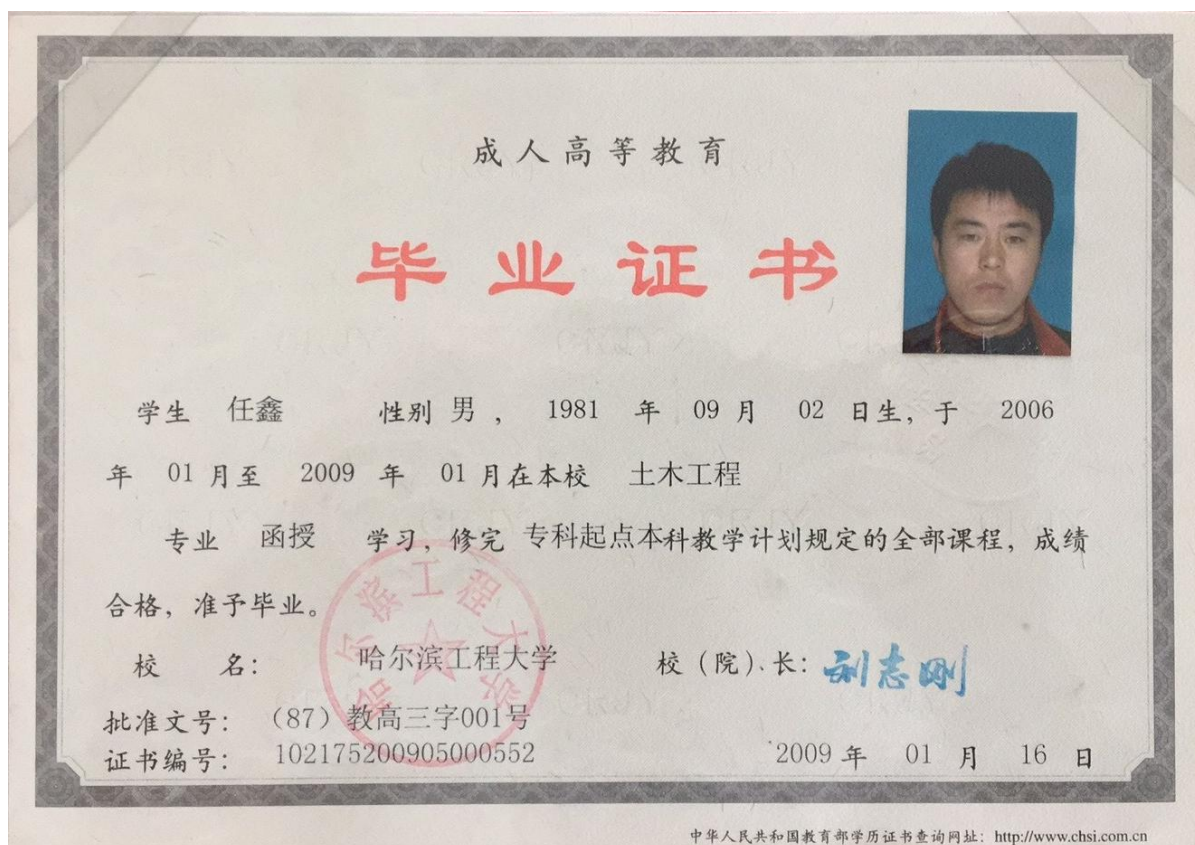 成人高等教育
毕业证书
学生 任鑫 性别 男， 1981 年 09 月 02 日生，于 2006
年 01 月至 2009 年 01 月在本校 土木工程
专业 函授 学习，修完 专科起点本科教学计划规定的全部课程，成绩
合格，准予毕业。
校 名： 哈尔滨工程大学 校（院）长：刘志刚
批准文号：（87）教高三字001号
证书编号： 102175200905000552 2009 年 01 月 16 日
哈尔滨工程大学
中华人民共和国教育部学历证书查询网址：http://www.chsi.com.cn